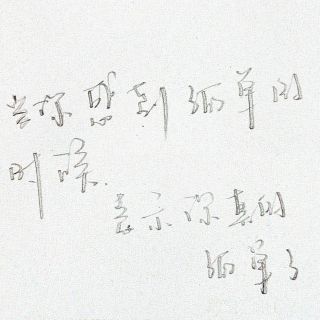 当你感到孤单的
时候.
表示你真的
孤单了